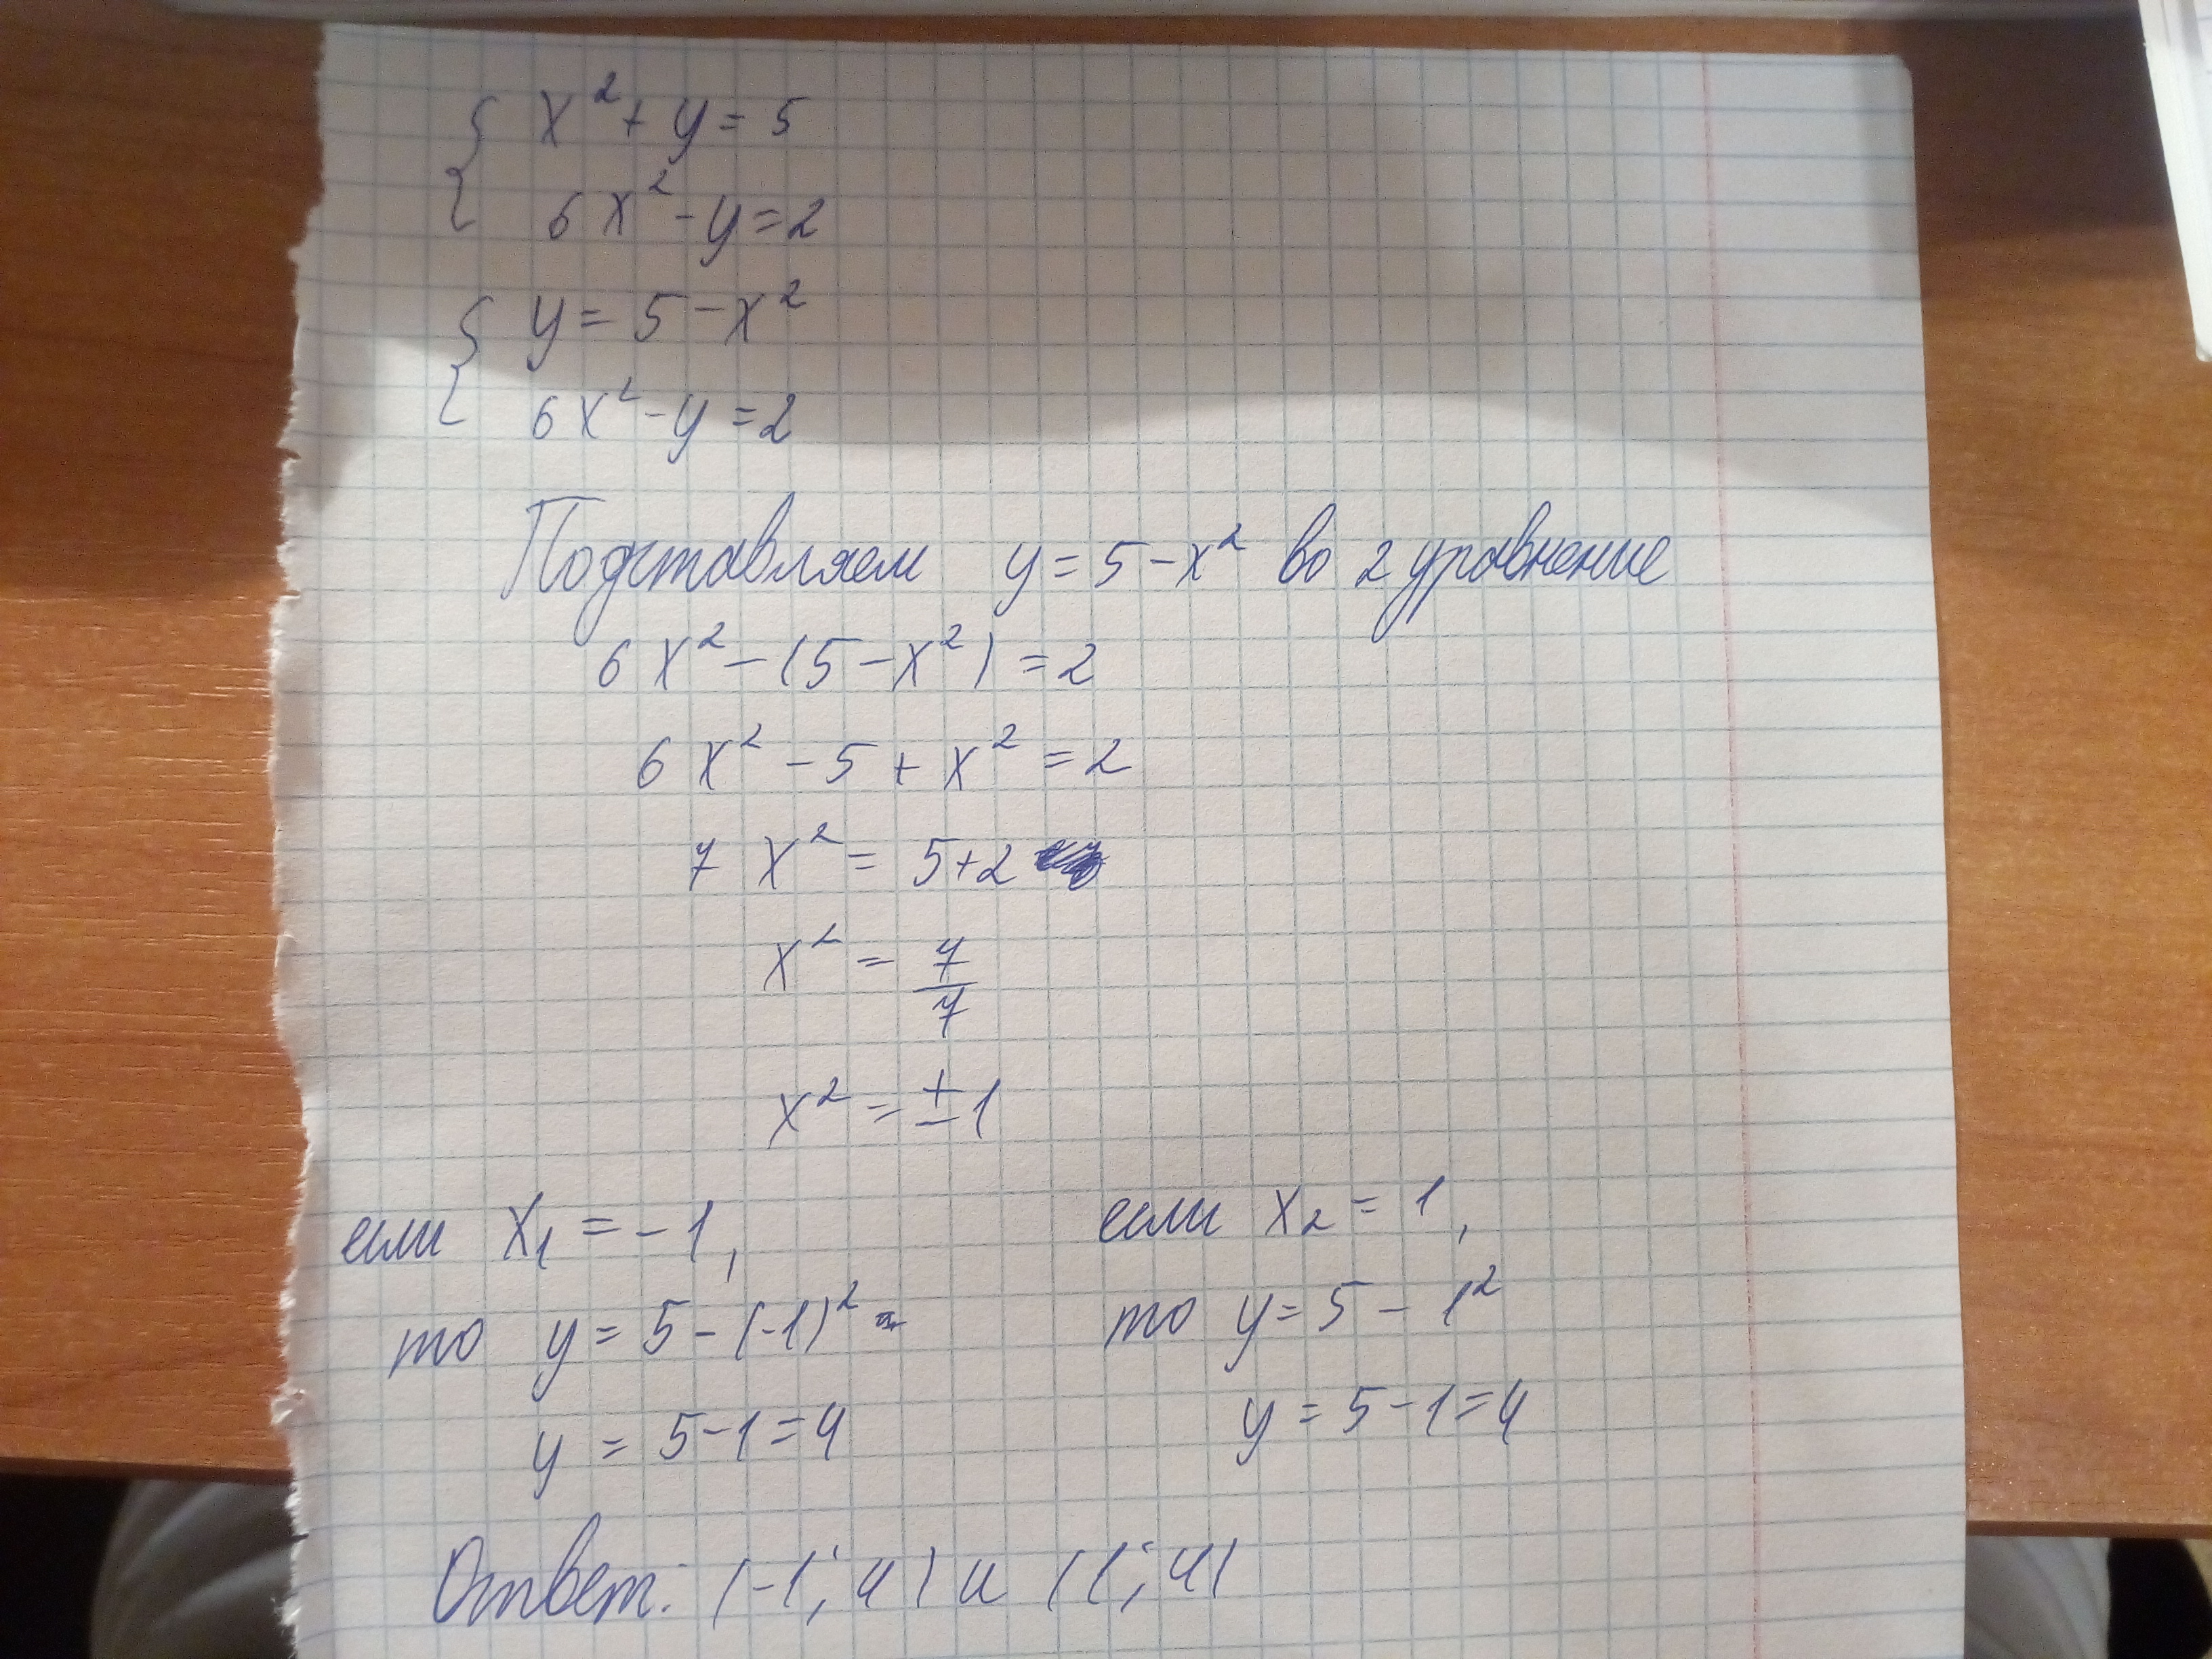 { x² + y = 5
6x² - y = 2
{ y = 5 - x²
6x² - y = 2
Подставляем y = 5 - x² во 2 уравнение
6x² - (5 - x²) = 2
6x² - 5 + x² = 2
7x² = 5+2
x² = 7/7
x² = ±1
если x₁ = -1,
то y = 5 - (-1)²
y = 5 - 1 = 4
если x₂ = 1,
то y = 5 - 1²
y = 5 - 1 = 4
Ответ: (-1; 4) и (1; 4)